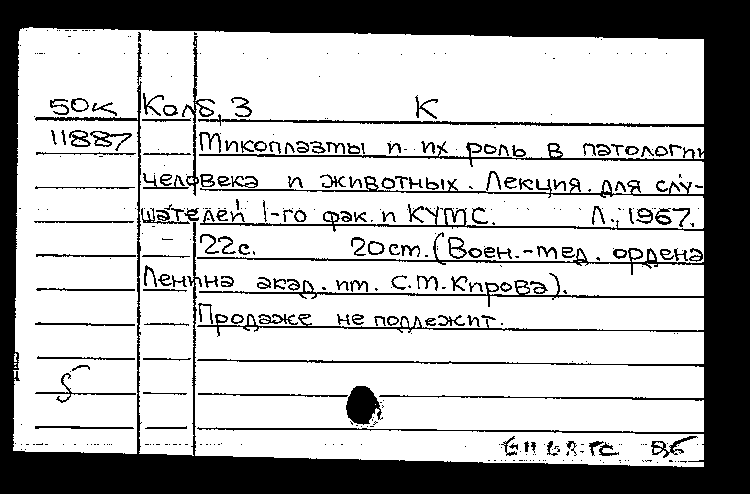 50к Колб, З К
11887 Микоплазмы и их роль в патологии
человека и животных. Лекция для слу-
шателей 1-го фак. и КУМС. Л., 1967.
22с. 20см. (Воен.-мед. ордена
Ленина акад. им. С.М.Кирова).
Продаже не подлежит.
5